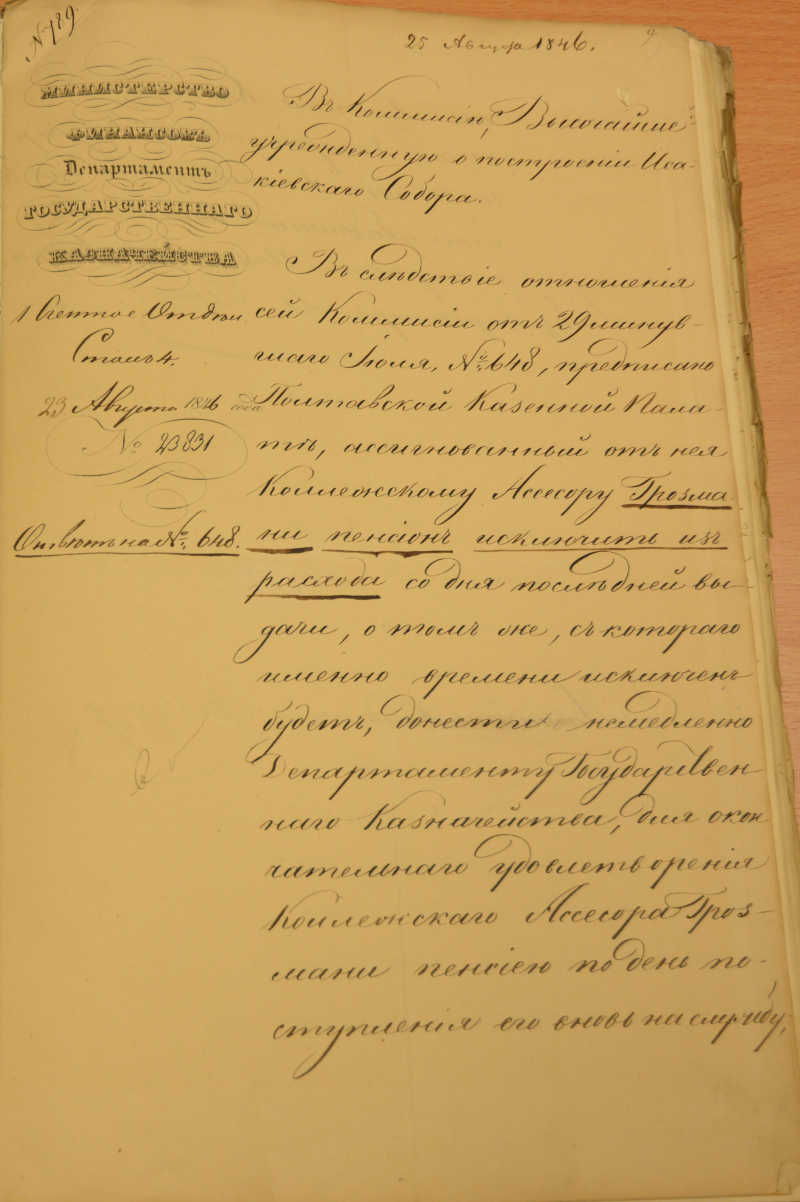 N 789
25 Августа 1846.
9
МИНИСТЕРСТВО
ФИНАНСОВЪ
Департаментъ
ГОСУДАРСТВЕННАГО
КАЗНАЧЕЙСТВА
1 Счетное Отдѣл
Столъ 4.
23 Августа 1846 года
№ 23831
Отвѣтъ на №: 648.
Въ Коммисію, Высочайше
учрежденную о построеніи Иса-
кіевскаго Собора.
Въ слѣдствіе отношенія
сей Коммисіи отъ 29 минув-
шаго Іюля, №: 648, предписано
Полтавской Казенной Пала-
тѣ, ассигнованный отъ нея
Коллежскому Ассесору Грозма-
ни пенсіонъ исключить изъ
расхода со дня послѣдней вы-
дачи, о томъ же, съ котораго
именно времени исключенъ
будетъ, донести немедленно
Департаменту Государствен-
наго Казначейства, для окон
чательнаго удовлетворенія
Коллежскаго Ассесора Гроз-
мани пенсіею по день по-
ступленія его вновь на службу,